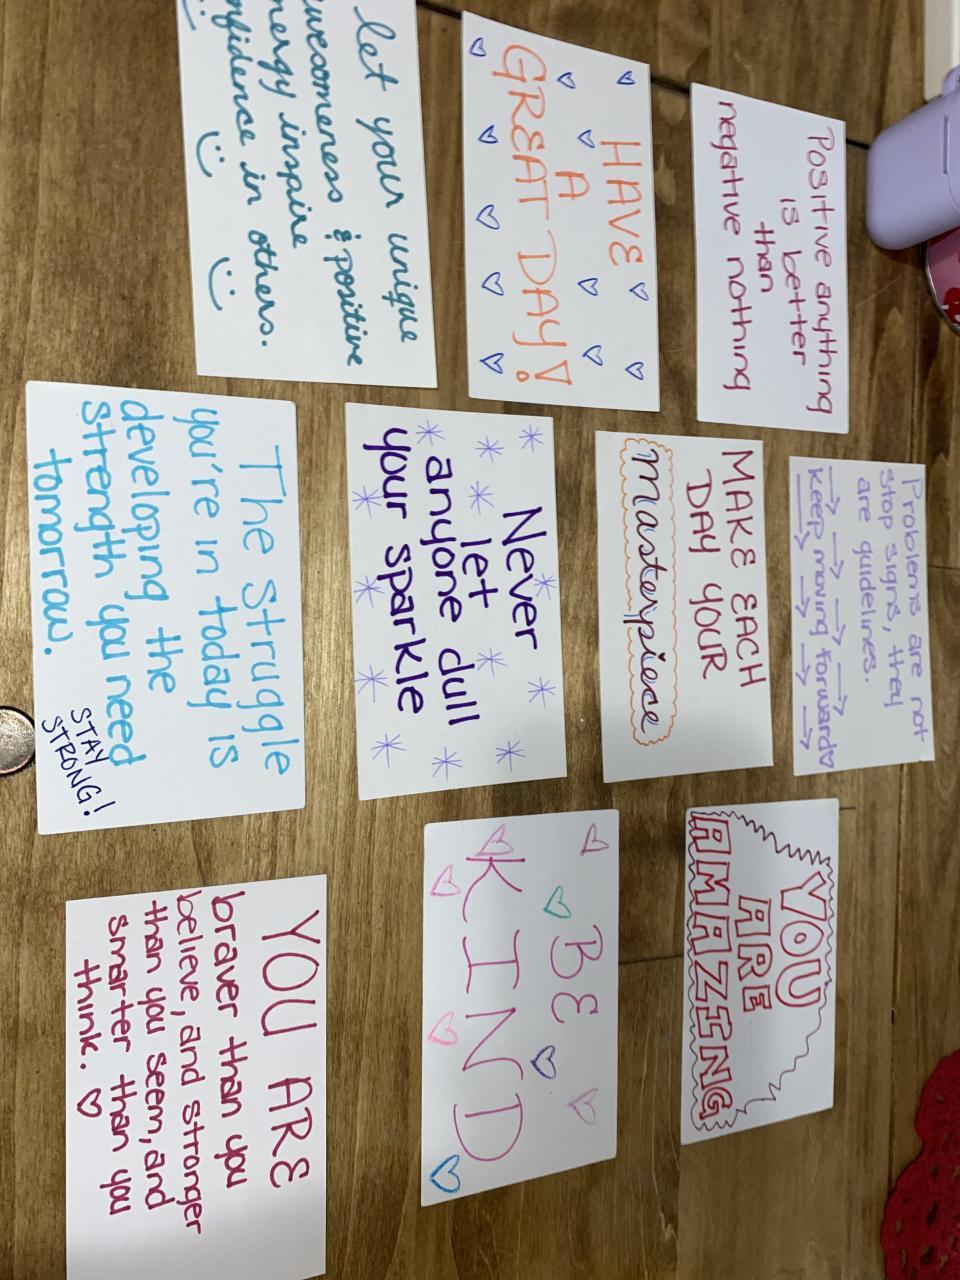 Positive anything
is better
than
negative nothing
HAVE
A
GREAT DAY!
let your unique
awesomeness & positive
energy inspire
confidence in others.
Problems are not
stop signs, they
are guidelines.
keep moving forward
MAKE EACH
DAY YOUR
masterpiece
Never
let
anyone dull
your sparkle
The struggle
you're in today is
developing the
strength you need
tomorrow.
STAY
STRONG!
YOU
ARE
AMAZING
BE
KIND
YOU ARE
braver than you
believe, and stronger
than you seem, and
smarter than you
think.